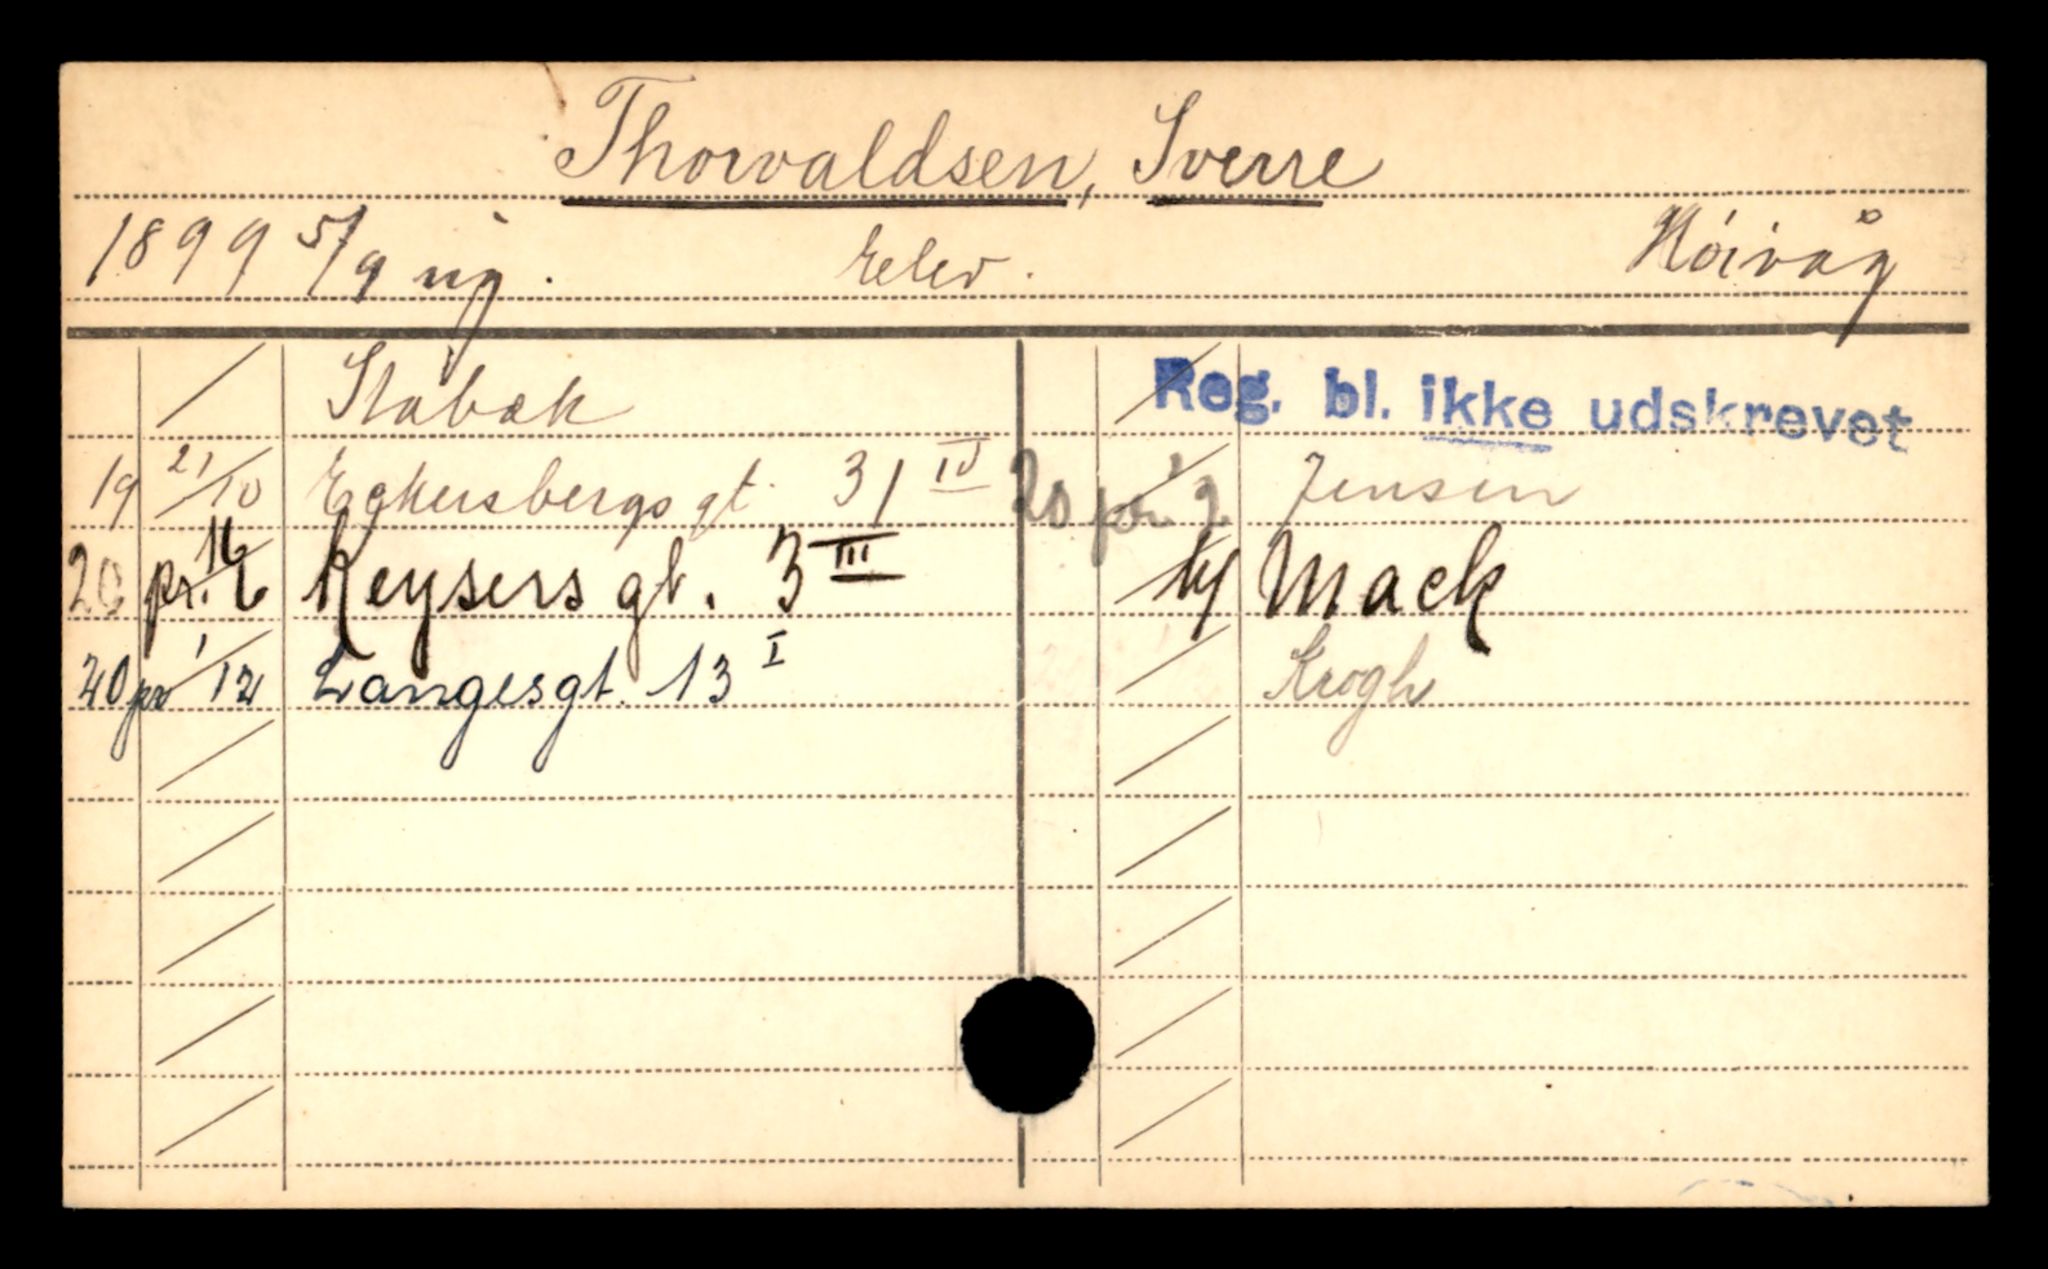 Thorvaldsen, Sverre
1899 5/9 ug. Elev. Höivåg
Stabæk Reg. bl. ikke udskrevet
19 21/10 Eckersbergs gt. 31 IV 20 pr. 2 Jensen
20 pr. 16/6 Keysers gt. 3 III Mack
20 pr 1/12 Langesgt. 13 I Krogh